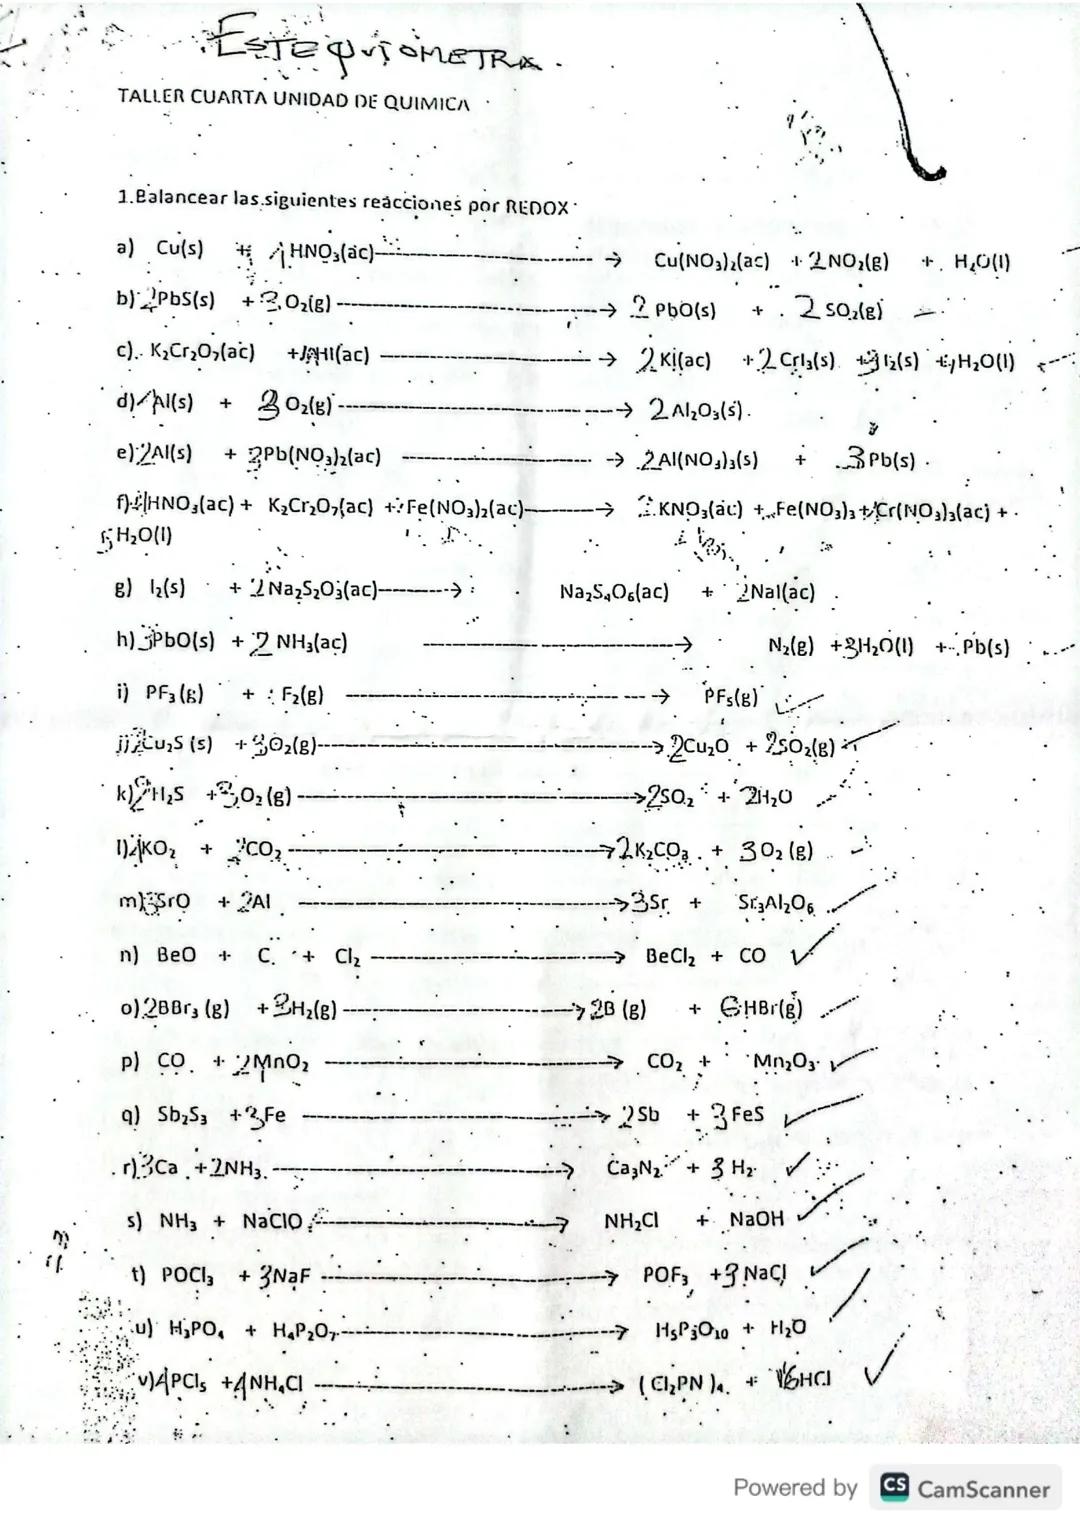 ESTEQUIOMETRA.
TALLER CUARTA UNIDAD DE QUIMICA
1.Balancear las siguientes reacciones por REDOX
a) Cu(s) + 4 HNO₃(ac) → Cu(NO₃)₂(ac) + 2 NO₂(g) + H₂O(l)
b) 2PbS(s) + 3 O₂(g) → 2 PbO(s) + 2 SO₂(g)
c). K₂Cr₂O₇(ac) + HI(ac) → 2 KI(ac) + 2 CrI₃(s) + 3 I₂(s) + H₂O(l)
d) Al(s) + 3 O₂(g) → 2 Al₂O₃(s).
e) 2Al(s) + 3Pb(NO₃)₂(ac) → 2Al(NO₃)₃(s) + 3 Pb(s)
f) HNO₃(ac) + K₂Cr₂O₇(ac) + Fe(NO₃)₂(ac) → 2 KNO₃(ac) + Fe(NO₃)₃ + Cr(NO₃)₃(ac) +
H₂O(l)
g) I₂(s) + 2Na₂S₂O₃(ac) → Na₂S₄O₆(ac) + 2NaI(ac)
h) 3PbO(s) + 2 NH₃(ac) → N₂(g) + 3H₂O(l) + Pb(s)
i) PF₃(g) + F₂(g) → PF₅(g)
j) 2Cu₂S (s) + 3O₂(g) → 2Cu₂O + 2SO₂(g)
k) 2H₂S + 3 O₂(g) → 2SO₂ + 2H₂O
l) 4KO₂ + 2CO₂ → 2K₂CO₃ + 3O₂ (g)
m) 3SrO + 2Al → 3Sr + Sr₃Al₂O₆
n) BeO + C + Cl₂ → BeCl₂ + CO
o) 2BBr₃ (g) + 3H₂(g) → 2B (g) + 6HBr(g)
p) CO + 2MnO₂ → CO₂ + Mn₂O₃
q) Sb₂S₃ + 3Fe → 2Sb + 3FeS
r) 3Ca + 2NH₃ → Ca₃N₂ + 3 H₂
s) NH₃ + NaClO → NH₂Cl + NaOH
t) POCl₃ + 3NaF → POF₃ + 3NaCl
u) H₃PO₄ + H₄P₂O₇ → H₅P₃O₁₀ + H₂O
v) 4PCl₅ + 4NH₄Cl → (Cl₂PN)₄ + 16HCl
Powered by CS CamScanner